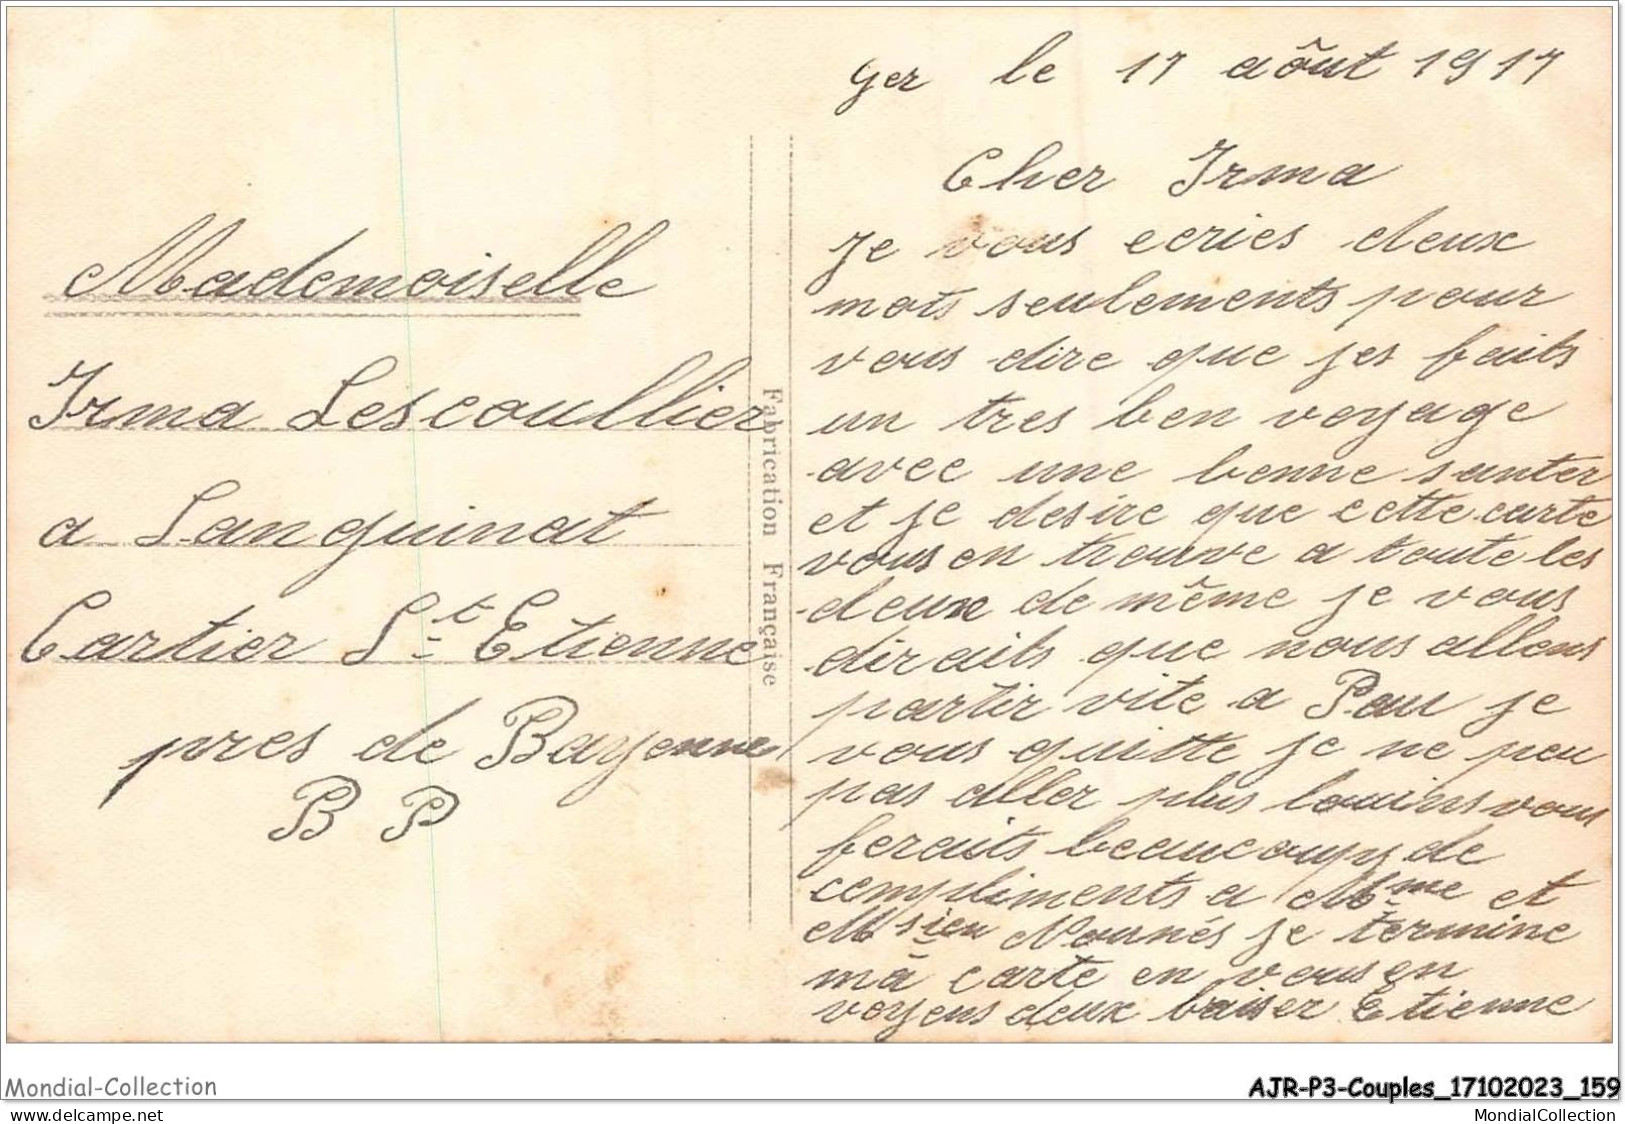 Mademoiselle
Irma Lescoullier
a Lanquinat
Cartier St Etienne
pres de Bayonne
B P
Fabrication Française
Ger le 17 aôut 1917
Cher Irma
Je vous ecries deux
mots seulements pour
vous dire que jes faits
un tres ben voyage
avec une bonne santer
et je desire que cette carte
vous en trouve a toute les
deux de même je vous
diraits que nous allons
partir vite a Pau je
vous quitte je ne peu
pas aller plus louins vous
feraits beaucoup de
compliments a Mme et
Msieu Nounés je termine
ma carte en vous en
voyens deux baiser Etienne
Mondial-Collection
AJR-P3-Couples_17102023_159
www.delcampe.net
MondialCollection